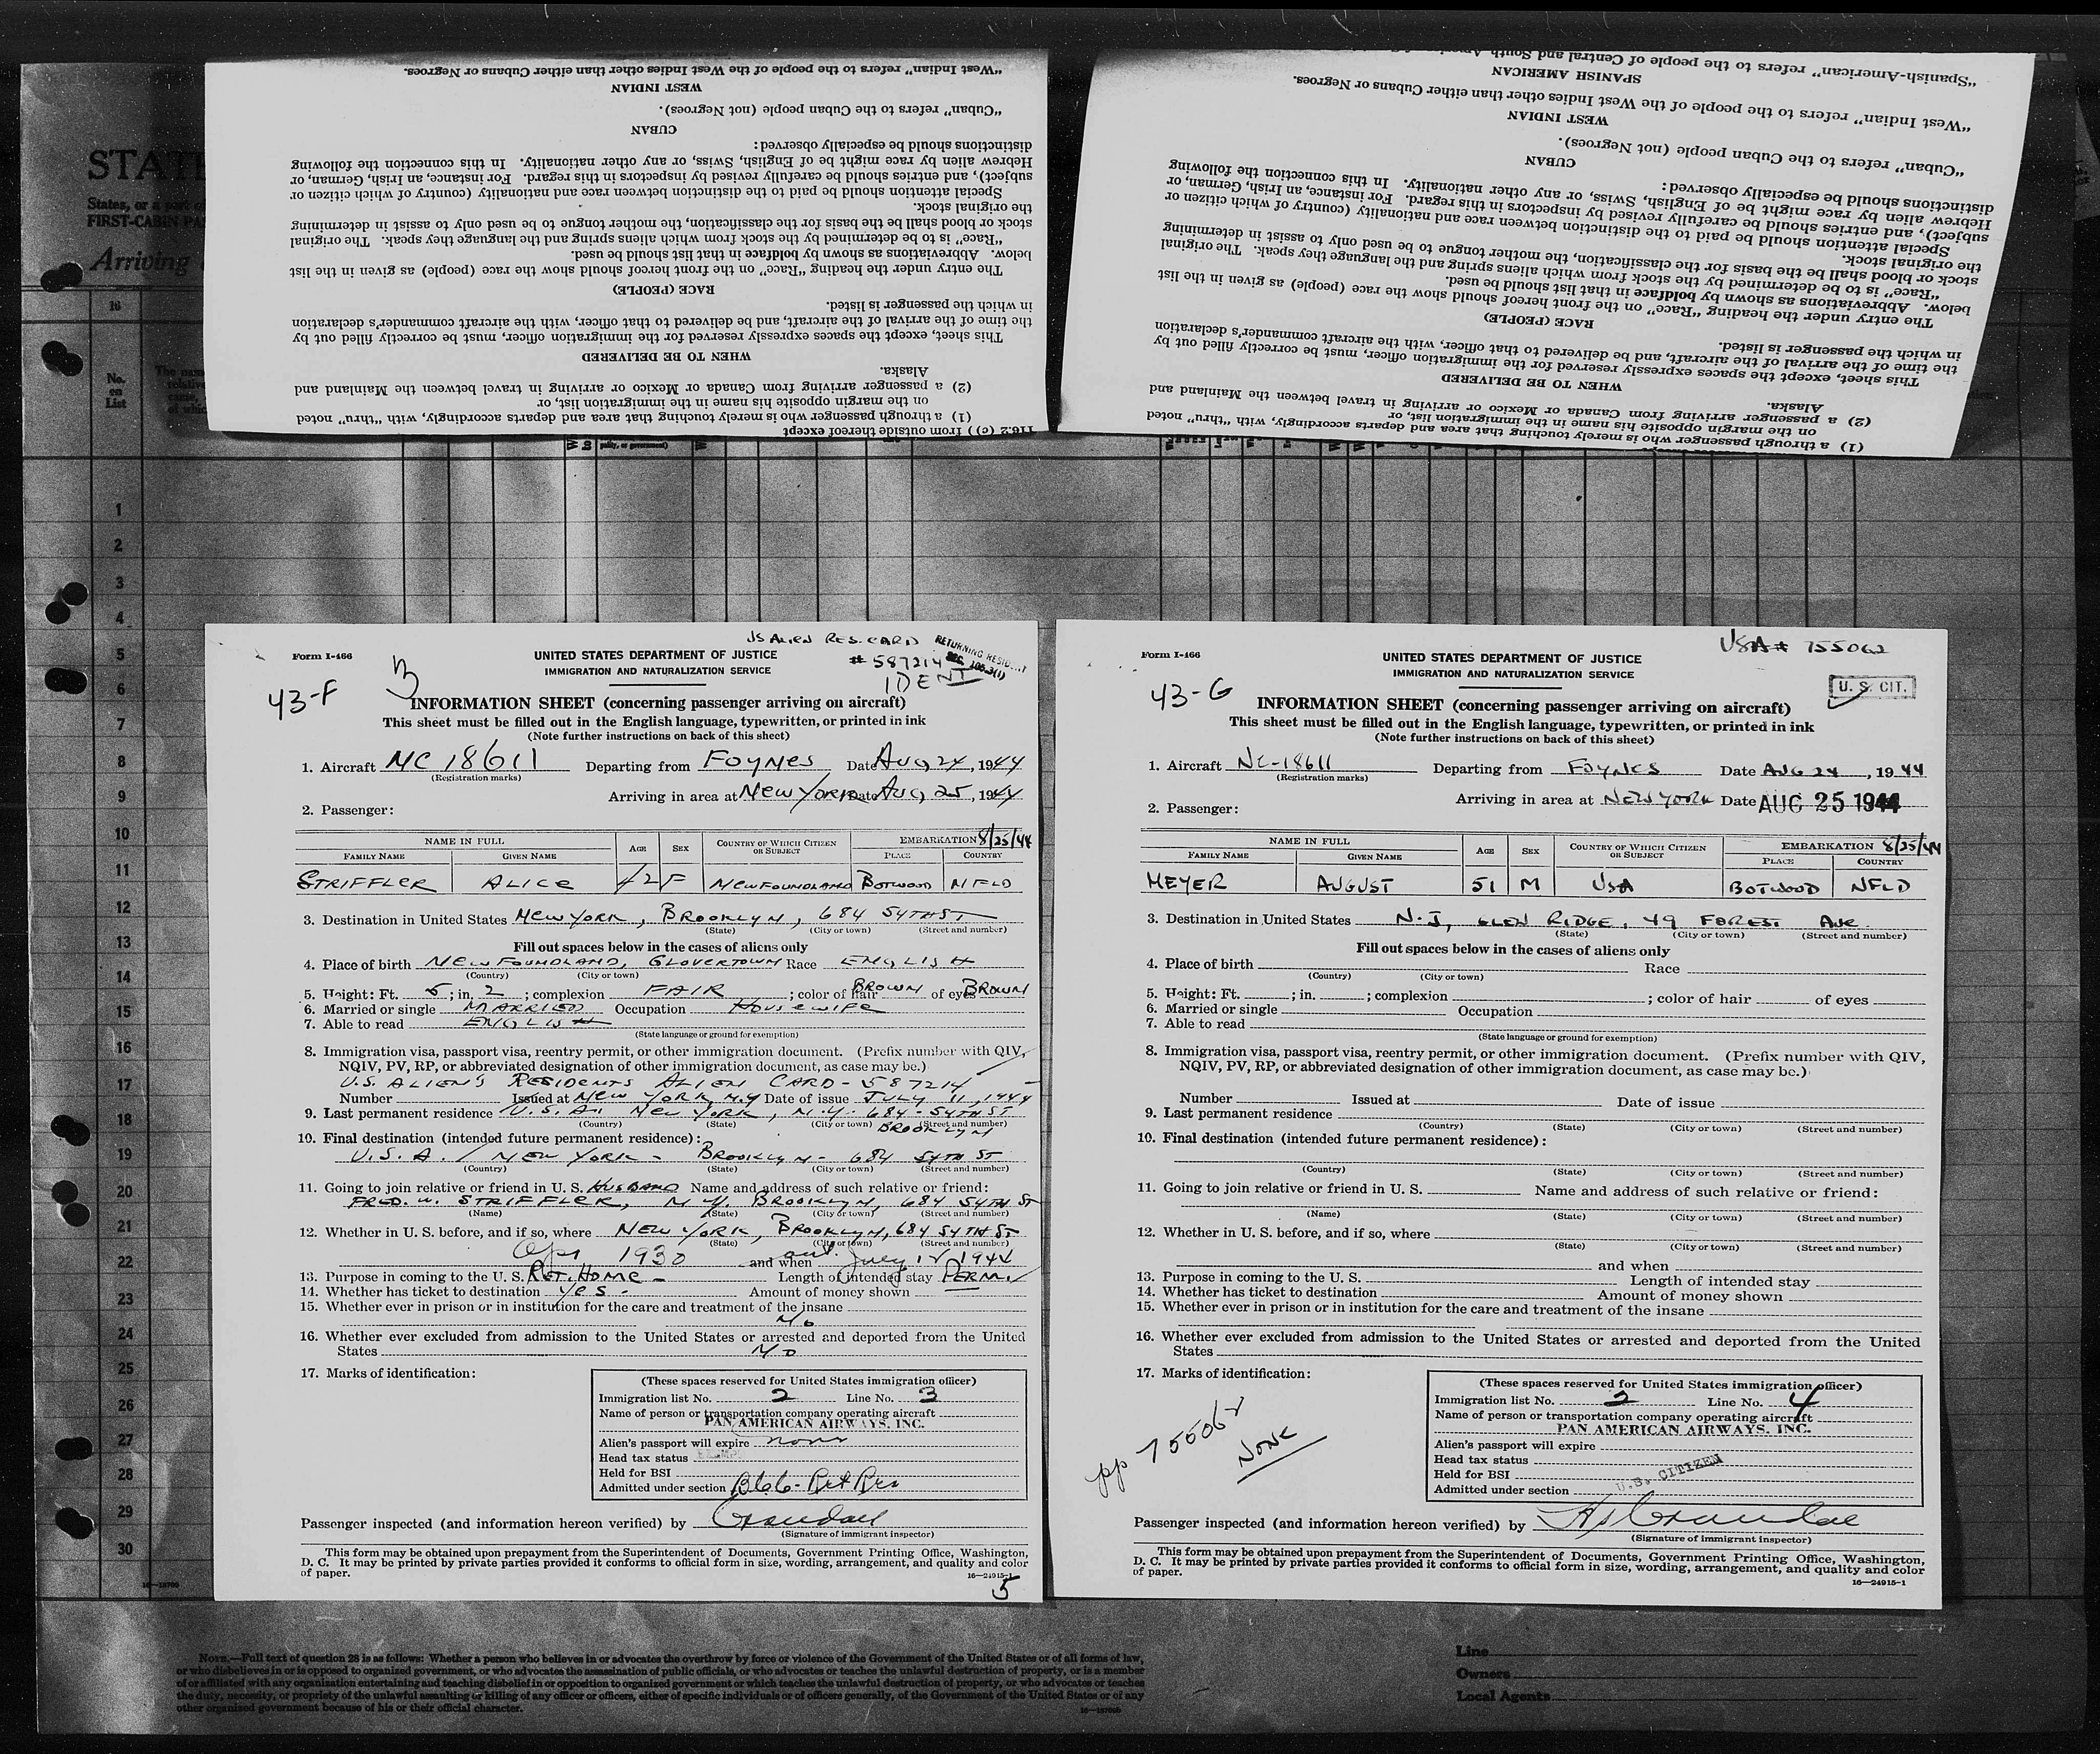 "West Indian" refers to the people of the West Indies other than either Cubans or Negroes.
WEST INDIAN
"Cuban" refers to the people of the Cuban people (not Negroes).
CUBAN
distinctions should be especially observed:
Hebrew alien by race might be of English, Swiss, or any other nationality. In this connection the following
subject), and entries should be carefully revised by inspectors in this regard. For instance, an Irish, German, or
Special attention should be paid to the distinction between race and nationality (country of which citizen or
the original stock.
stock or blood shall be the basis for the classification, the mother tongue to be used only to assist in determining
"Race" is to be determined by the stock from which aliens spring and the language they speak. The original
below. Abbreviations as shown by boldface in that list should be used.
The entry under the heading "Race" on the front hereof should show the race (people) as given in the list
RACE (PEOPLE)
in which the passenger is listed.
the time of the arrival of the aircraft, and be delivered to that officer, with the aircraft commander's declaration
This sheet, except the spaces expressly reserved for the immigration officer, must be correctly filled out by
WHEN TO BE DELIVERED
Alaska.
(2) a passenger arriving from Canada or Mexico or arriving in travel between the Mainland and
on the margin opposite his name in the immigration list, or
(1) a through passenger who is merely touching that area and departs accordingly, with "thru" noted
116.2 (c)) from outside thereof except
"Spanish-American" refers to the people of Central and South
SPANISH AMERICAN
"West Indian" refers to the people of the West Indies other than either Cubans or Negroes.
WEST INDIAN
"Cuban" refers to the Cuban people (not Negroes).
CUBAN
distinctions should be especially observed:
Hebrew alien by race might be of English, Swiss, or any other nationality. In this connection the following
subject), and entries should be carefully revised by inspectors in this regard. For instance, an Irish, German, or
Special attention should be paid to the distinction between race and nationality (country of which citizen or
the original stock.
stock or blood shall be the basis for the classification, the mother tongue to be used only to assist in determining
"Race" is to be determined by the stock from which aliens spring and the language they speak. The original
below. Abbreviations as shown by boldface in that list should be used.
The entry under the heading "Race" on the front hereof should show the race (people) as given in the list
RACE (PEOPLE)
in which the passenger is listed.
the time of the arrival of the aircraft, and be delivered to that officer, with the aircraft commander's declaration
This sheet, except the spaces expressly reserved for the immigration officer, must be correctly filled out by
WHEN TO BE DELIVERED
Alaska.
(2) a passenger arriving from Canada or Mexico or arriving in travel between the Mainland and
on the margin opposite his name in the immigration list, or
(1) a through passenger who is merely touching that area and departs accordingly, with "thru" noted
STATE
States, or a
FIRST-CABIN PA
Arriving
16
No. on List
1
2
3
4
5
6
7
8
9
10
11
12
13
14
15
16
17
18
19
20
21
22
23
24
25
26
27
28
29
30
US ALIEN RES. CARD
# 587214
IDENT
RETURNING RESIDENT
Form I-466
43-F
UNITED STATES DEPARTMENT OF JUSTICE
IMMIGRATION AND NATURALIZATION SERVICE
INFORMATION SHEET (concerning passenger arriving on aircraft)
This sheet must be filled out in the English language, typewritten, or printed in ink
(Note further instructions on back of this sheet)
1. Aircraft NC 18611 Departing from FOYNES Date AUG 24, 1944
(Registration marks)
Arriving in area at NEW YORK Date AUG, 25, 1944
2. Passenger:
NAME IN FULL AGE SEX COUNTRY OF WHICH CITIZEN OR SUBJECT EMBARKATION 8/25/44
FAMILY NAME GIVEN NAME PLACE COUNTRY
STRIFFLER ALICE 42 F NEWFOUNDLAND BOTWOOD NFLD
3. Destination in United States NEW YORK, BROOKLYN, 684 54TH ST
(State) (City or town) (Street and number)
Fill out spaces below in the cases of aliens only
4. Place of birth NEWFOUNDLAND, GLOVERTOWN Race ENGLISH
(Country) (City or town)
5. Height: Ft. 5; in. 2; complexion FAIR; color of hair BROWN of eyes BROWN
6. Married or single MARRIED Occupation HOUSEWIFE
7. Able to read ENGLISH
(State language or ground for exemption)
8. Immigration visa, passport visa, reentry permit, or other immigration document. (Prefix number with QIV,
NQIV, PV, RP, or abbreviated designation of other immigration document, as case may be.)
U.S. ALIEN'S RESIDENTS ALIEN CARD - 587214
Number Issued at NEW YORK, N.Y Date of issue JULY 11, 1944
9. Last permanent residence U.S.A. NEW YORK, N.Y. 684 - 54TH ST
(Country) (State) (City or town) BROOKLYN (Street and number)
10. Final destination (intended future permanent residence):
U.S.A. / NEW YORK - BROOKLYN - 684 54TH ST
(Country) (State) (City or town) (Street and number)
11. Going to join relative or friend in U. S. HUSBAND Name and address of such relative or friend:
FRED. W. STRIFFLER, N.Y. BROOKLYN, 684 54TH ST
(Name) (State) (City or town) (Street and number)
12. Whether in U. S. before, and if so, where NEW YORK, BROOKLYN, 684 54TH ST
(State) (City or town) (Street and number)
Apr 1930 and when July 12 1944
13. Purpose in coming to the U. S. RET. HOME - Length of intended stay PERM.
14. Whether has ticket to destination YES - Amount of money shown
15. Whether ever in prison or in institution for the care and treatment of the insane
NO
16. Whether ever excluded from admission to the United States or arrested and deported from the United
States NO
17. Marks of identification:
(These spaces reserved for United States immigration officer)
Immigration list No. 2 Line No. 3
Name of person or transportation company operating aircraft
PAN AMERICAN AIRWAYS, INC.
Alien's passport will expire none
Head tax status
Held for BSI
Admitted under section
Passenger inspected (and information hereon verified) by Crandall
(Signature of immigrant inspector)
This form may be obtained upon prepayment from the Superintendent of Documents, Government Printing Office, Washington,
D. C. It may be printed by private parties provided it conforms to official form in size, wording, arrangement, and quality and color
of paper.
16—24915-1
5
USA # 755062
U. S. CIT.
Form I-466
43-G
UNITED STATES DEPARTMENT OF JUSTICE
IMMIGRATION AND NATURALIZATION SERVICE
INFORMATION SHEET (concerning passenger arriving on aircraft)
This sheet must be filled out in the English language, typewritten, or printed in ink
(Note further instructions on back of this sheet)
1. Aircraft NC-18611 Departing from FOYNES Date AUG 24, 1944
(Registration marks)
Arriving in area at NEW YORK Date AUG 25 1944
2. Passenger:
NAME IN FULL AGE SEX COUNTRY OF WHICH CITIZEN OR SUBJECT EMBARKATION 8/25/44
FAMILY NAME GIVEN NAME PLACE COUNTRY
MEYER AUGUST 51 M USA BOTWOOD NFLD
3. Destination in United States N.J, GLEN RIDGE, 49 FOREST AVE
(State) (City or town) (Street and number)
Fill out spaces below in the cases of aliens only
4. Place of birth Race
(Country) (City or town)
5. Height: Ft. ; in. ; complexion ; color of hair of eyes
6. Married or single Occupation
7. Able to read
(State language or ground for exemption)
8. Immigration visa, passport visa, reentry permit, or other immigration document. (Prefix number with QIV,
NQIV, PV, RP, or abbreviated designation of other immigration document, as case may be.)
Number Issued at Date of issue
9. Last permanent residence
(Country) (State) (City or town) (Street and number)
10. Final destination (intended future permanent residence):
(Country) (State) (City or town) (Street and number)
11. Going to join relative or friend in U. S. Name and address of such relative or friend:
(Name) (State) (City or town) (Street and number)
12. Whether in U. S. before, and if so, where
(State) (City or town) (Street and number)
and when
13. Purpose in coming to the U. S. Length of intended stay
14. Whether has ticket to destination Amount of money shown
15. Whether ever in prison or in institution for the care and treatment of the insane
16. Whether ever excluded from admission to the United States or arrested and deported from the United
States
17. Marks of identification:
pp 755062
NONE
(These spaces reserved for United States immigration officer)
Immigration list No. 2 Line No. 4
Name of person or transportation company operating aircraft
PAN AMERICAN AIRWAYS, INC.
Alien's passport will expire
Head tax status
Held for BSI
U.S. CITIZEN
Admitted under section
Passenger inspected (and information hereon verified) by Crandall
(Signature of immigrant inspector)
This form may be obtained upon prepayment from the Superintendent of Documents, Government Printing Office, Washington,
D. C. It may be printed by private parties provided it conforms to official form in size, wording, arrangement, and quality and color
of paper.
16—24915-1
NOTE.—Full text of question 28 is as follows: Whether a person who believes in or advocates the overthrow by force or violence of the Government of the United States or of all forms of law,
or who disbelieves in or is opposed to organized government, or who advocates the assassination of public officials, or who advocates or teaches the unlawful destruction of property, or is a member
of or affiliated with any organization entertaining and teaching disbelief in or opposition to organized government or which teaches the unlawful destruction of property, or who advocates or teaches
the duty, necessity, or propriety of the unlawful assaulting or killing of any officer or officers, either of specific individuals or of officers generally, of the Government of the United States or of any
other organized government because of his or their official character.
Line
Owners
Local Agents